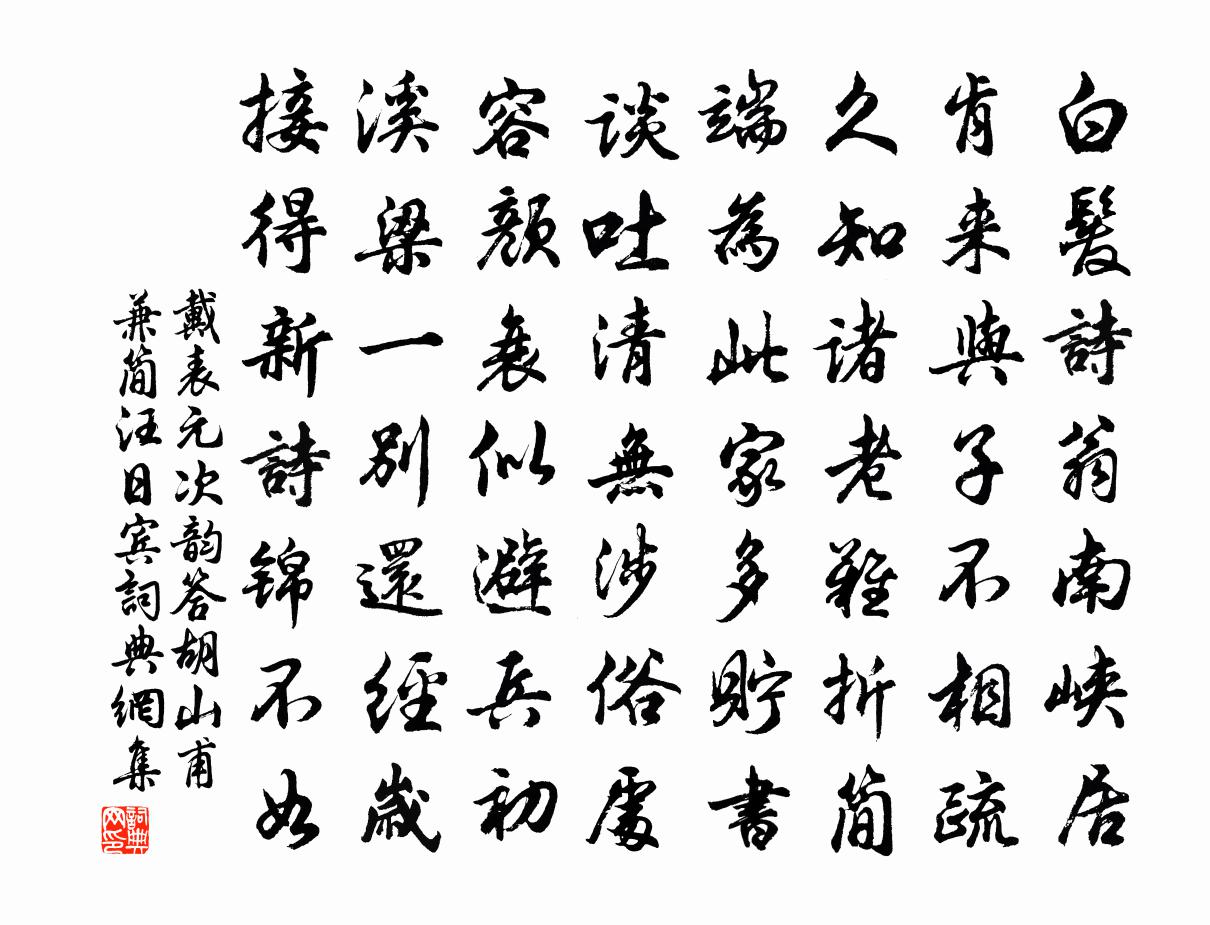 白髮詩翁南峽居
肯来與子不相疏
久知諸老難折简
端為此家多貯書
談吐清無涉俗處
容顏衰似避兵初
溪梁一別還經歲
接得新詩锦不如
戴表元次韵答胡山甫
兼简汪日宾詞典網集
詞典
网印